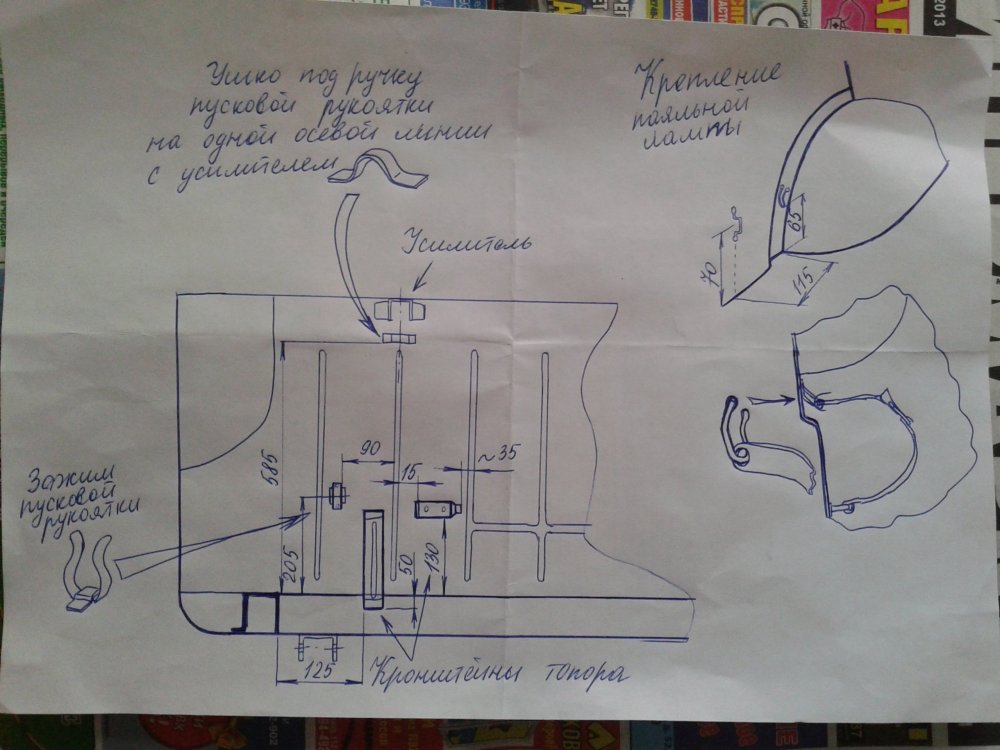 Ушко под ручку
пусковой рукоятки
на одной осевой линии
с усилителем
Крепление
паяльной
лампы
Усилитель
65
70
115
585
90
15
~35
Зажим
пусковой
рукоятки
205
50
130
125
Кронштейны топора
2013